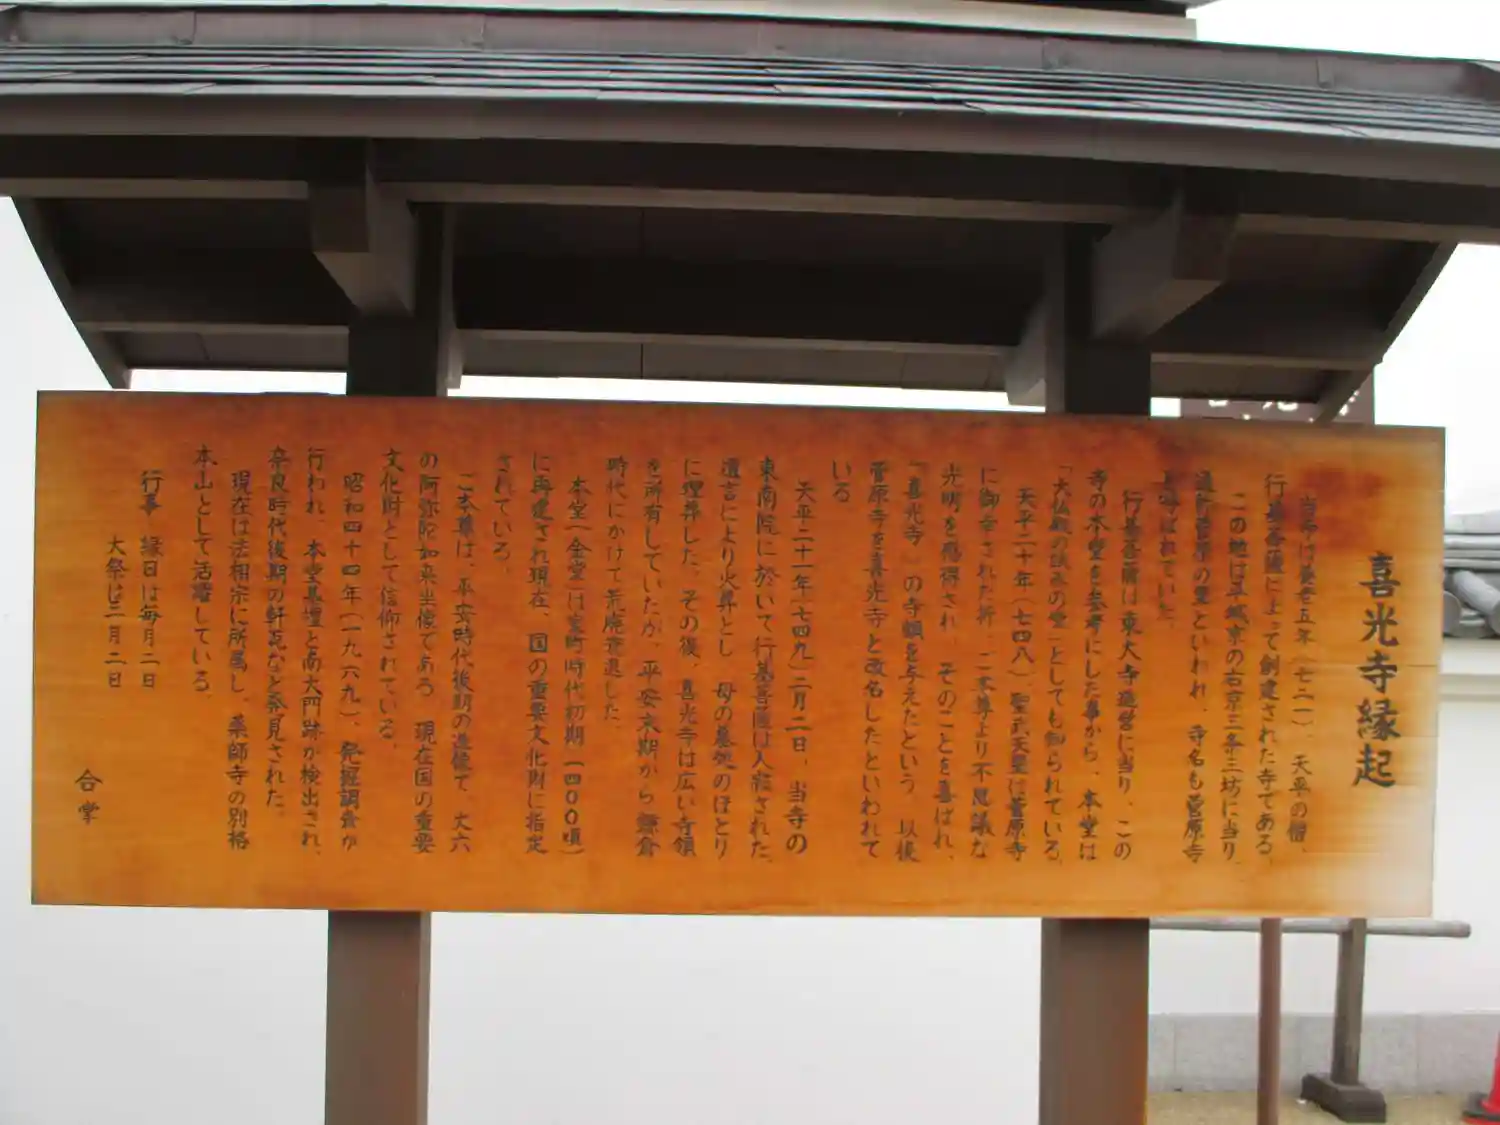 喜光寺縁起
当寺は養老五年（七二一）、天平の僧、
行基菩薩によって創建された寺である。
この地は平城京の右京三条三坊に当り、
通称菅原の里といわれ、寺名も菅原寺
と呼ばれていた。
行基菩薩は東大寺造営に当り、この
寺の本堂を参考にした事から、本堂は
「大仏殿の試みの堂」としても知られている。
天平二十年（七四八）聖武天皇は菅原寺
に御幸された折、ご本尊より不思議な
光明を感得され、そのことを喜ばれ、
「喜光寺」の寺額を与えたという。以後
菅原寺を喜光寺と改名したといわれて
いる
天平二十一年（七四九）二月二日、当寺の
東南院に於いて行基菩薩は入寂された。
遺言により火葬とし、母の墓地のほとり
に埋葬した。その後、喜光寺は広い寺領
を所有していたが、平安末期から鎌倉
時代にかけて荒廃衰退した。
本堂（金堂）は室町時代初期（一四〇〇頃）
に再建され現在、国の重要文化財に指定
されている。
ご本尊は、平安時代後期の造像で、丈六
の阿弥陀如来坐像である。現在国の重要
文化財として信仰されている。
昭和四十四年（一九六九）、発掘調査が
行われ、本堂基壇と南大門跡が検出され、
奈良時代後期の軒瓦など発見された。
現在は法相宗に所属し、薬師寺の別格
本山として活躍している。
行事 縁日は毎月二日
大祭は三月二日
合掌